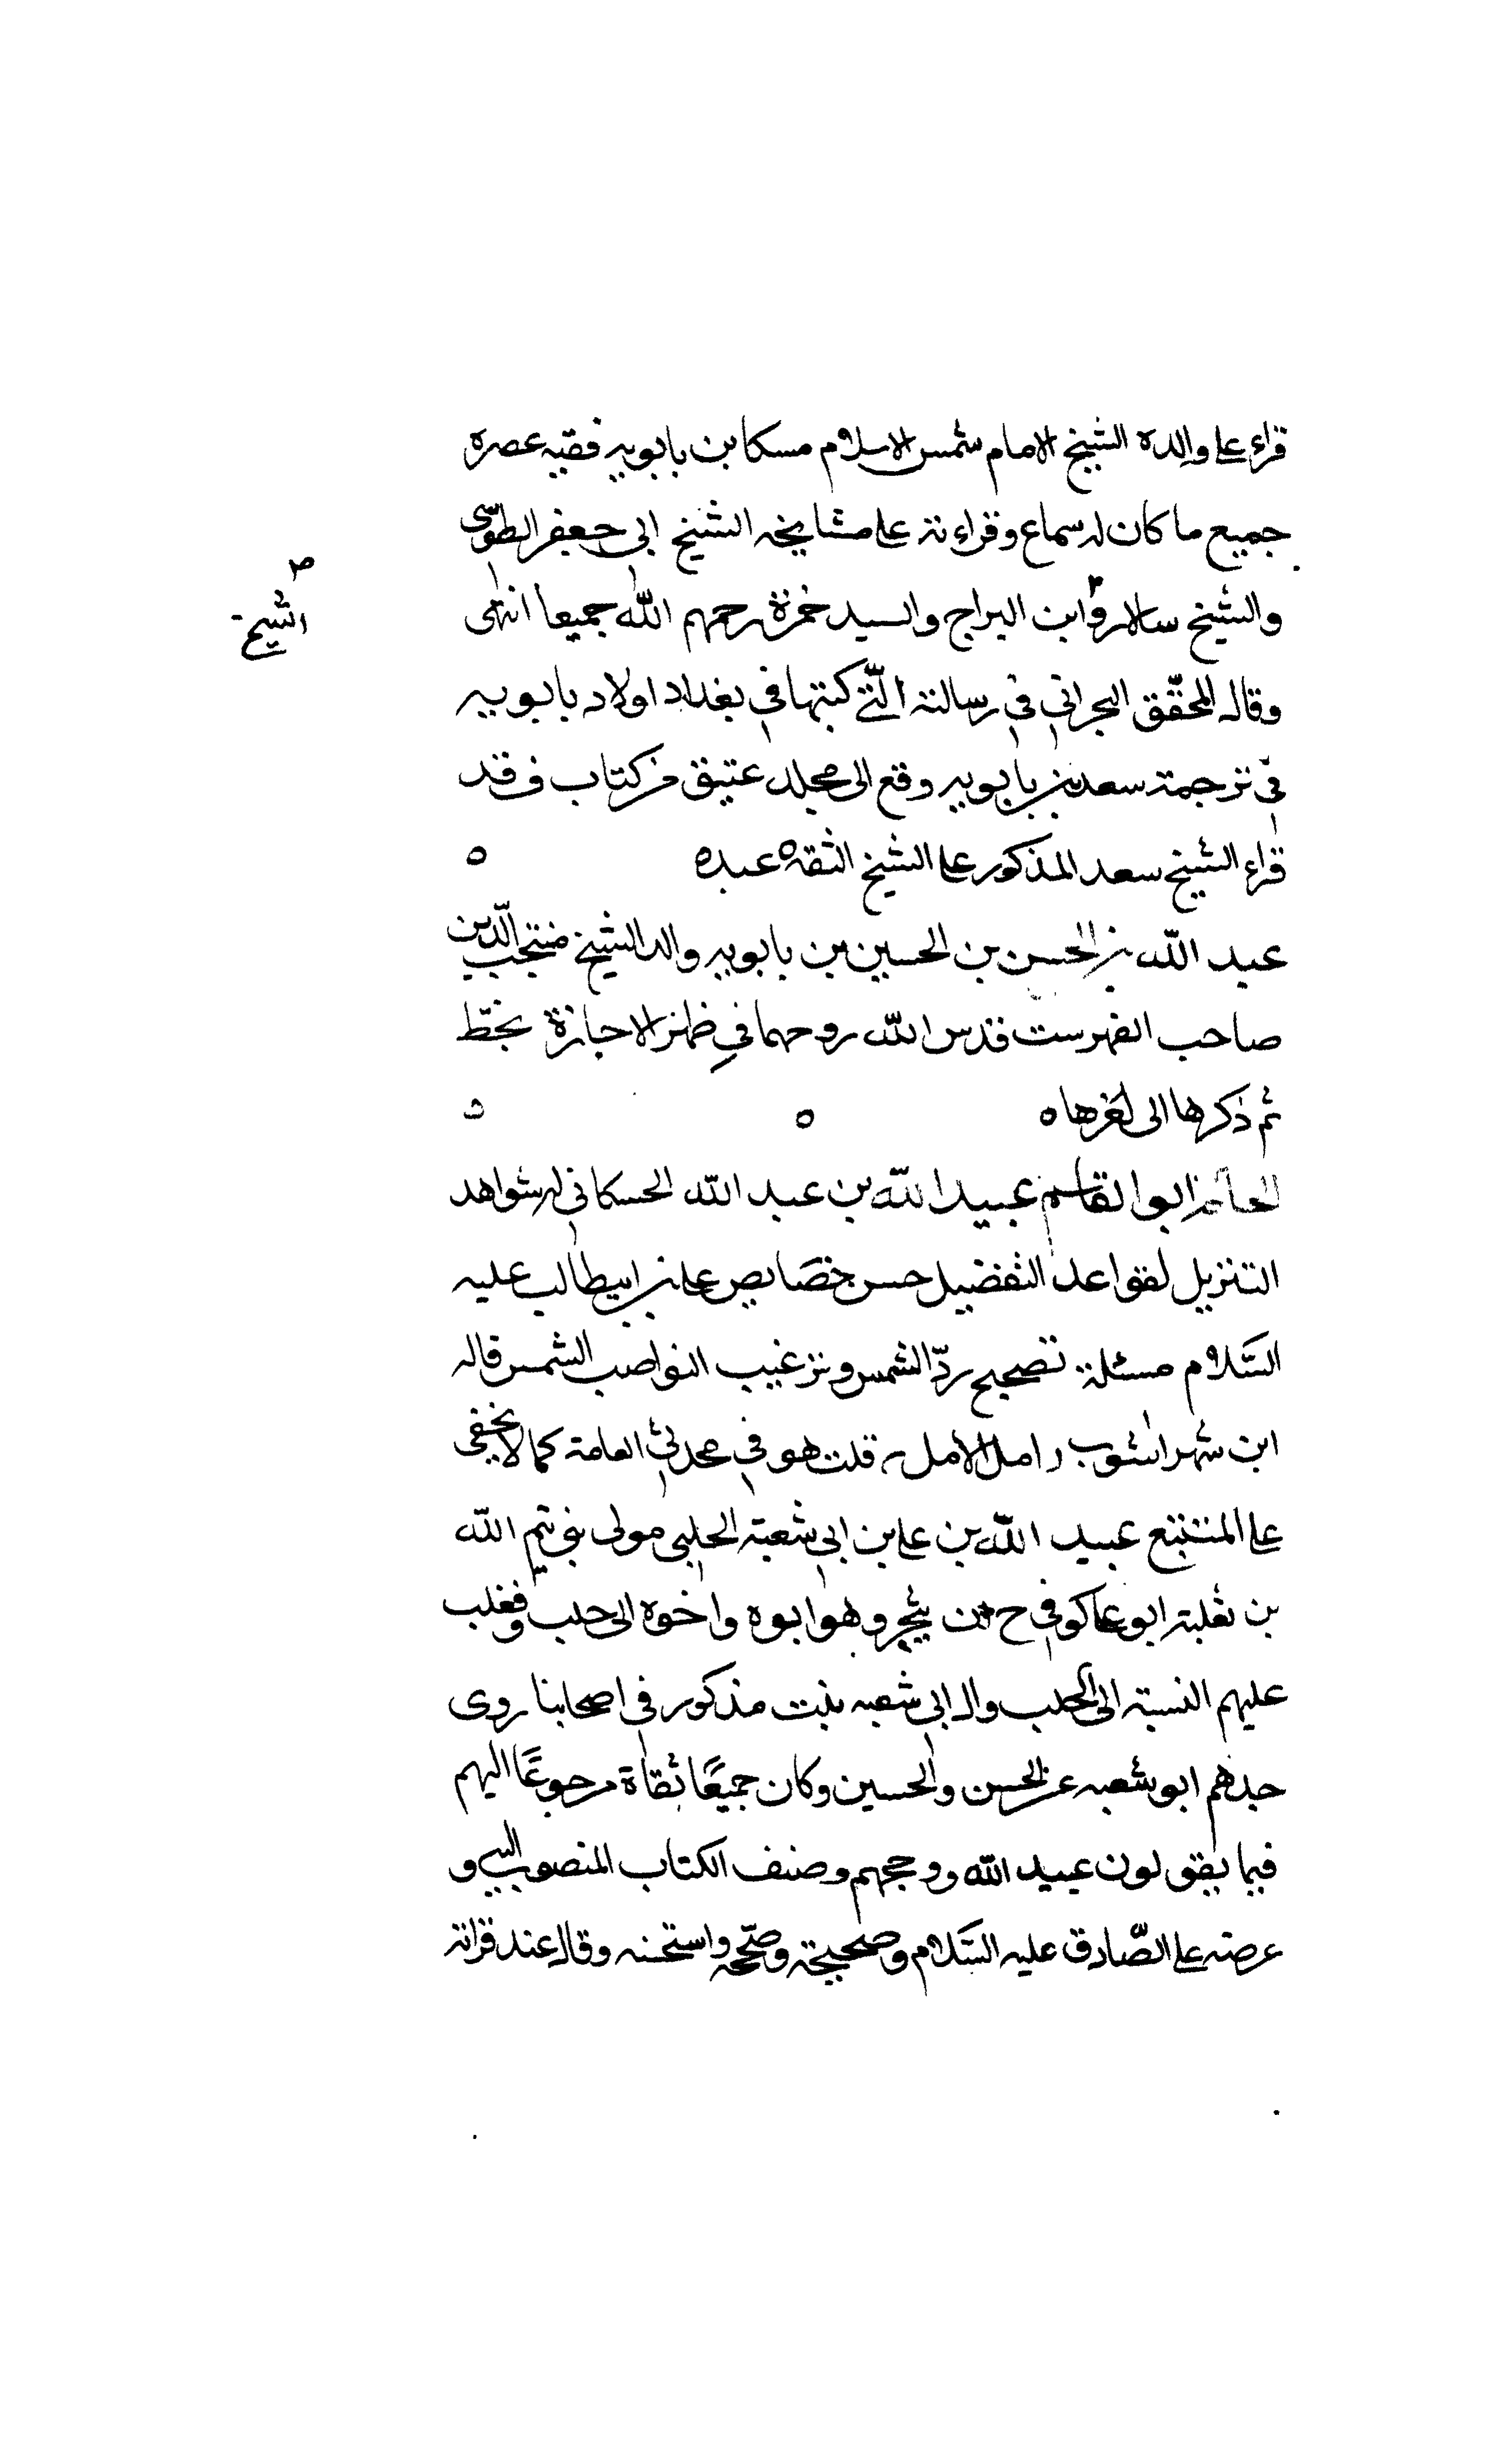 قراء على والده الشيخ الامام شمس الاسلام حسكا بن بابويه فقيه عصره
جميع ما كان له سماع وقراءته على مشايخه الشيخ ابى جعفر الطوسى
والشيخ سالار وابن البراج والسيد حمزة رحمهم الله جميعا انتهى
الشيخ
وقال المحقق البحرانى فى رسالته الّتى كتبها فى بغداد اولاد بابويه
فى ترجمة سعد بن بابويه وقع الى مجلد عتيق من كتاب ف قد
قراء الشيخ سعد المذكور على الشيخ الثقه عبده
عبد الله بن الحسن بن الحسين بن بابويه والد الشيخ منتجب الدّين
صاحب الفهرست قدس الله روحهما فى ظهر الاجازة بخطّ
ثم ذكرها الى اخرها
الحاكم ابو القاسم عبيد الله بن عبد الله الحسكانى له شواهد
التنزيل لقواعد التفضيل حسن خصايص على بن ابيطالب عليه
السّلام مسئلة تصحيح ردّ الشمس وترغيب النواصب الشمس قاله
ابن شهراشوب امل الامل قلت هو فى محدثى العامة كما لا يخفى
على المتتبع عبيد الله بن على بن ابى شعبة الحلبى مولى بنى تيم الله
بن ثعلبة ابو على كوفى يتجر وهو ابوه واخوه الى حلب وفغلب
عليهم النسبة الى الحلب وال ابى شعبه بيت مذكور فى اصحابنا روى
جدهم ابو شعبه عن الحسن والحسين وكان جميعًا ثقاة مرجوعًا اليهم
فيما يقولون عبيد الله ووجههم وصنف الكتاب المنصوب اليه و
عرضه على الصّادق عليه السّلام وصححه واستحسنه وقال عند قرائته